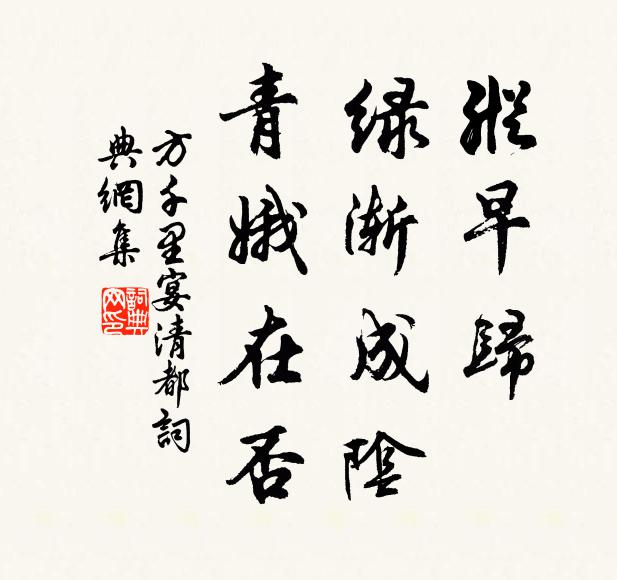 縱早歸
綠漸成陰
青娥在否
方千里宴清都詞
典網集
詞典網印